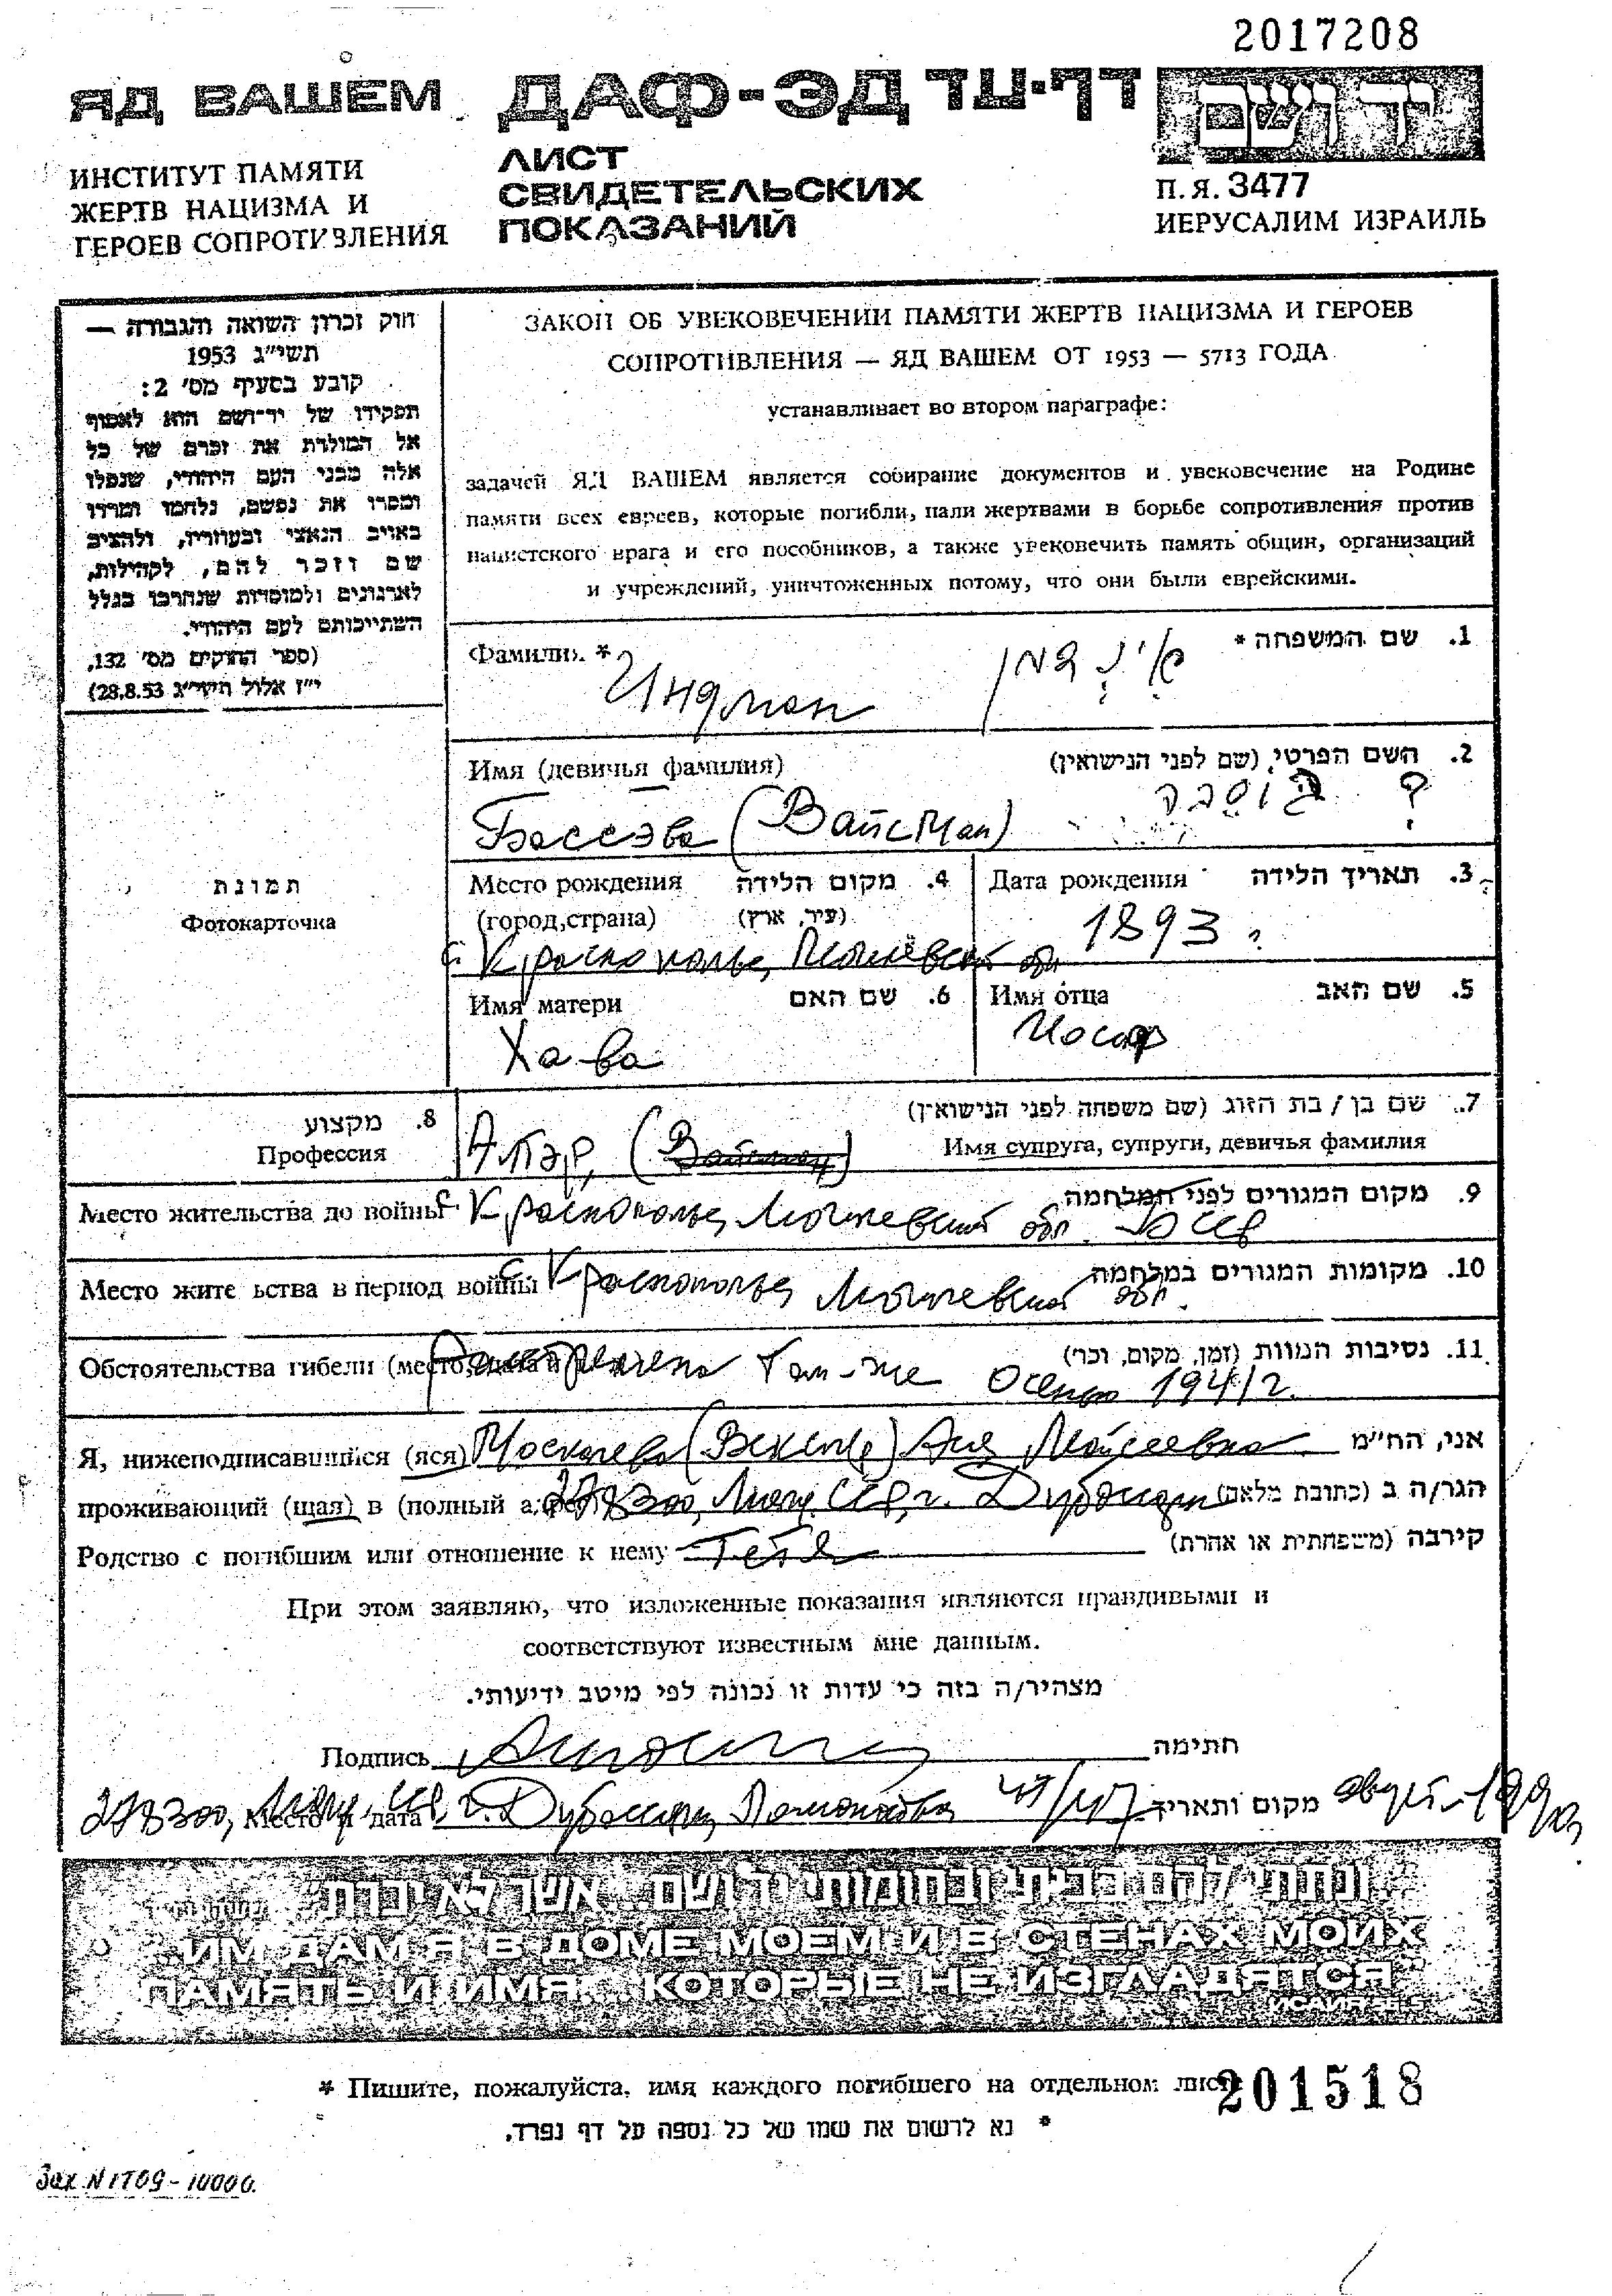 2017208
ЯД ВАШЕМ
ДАФ-ЭД דף-עד
יד ושם
ИНСТИТУТ ПАМЯТИ
ЖЕРТВ НАЦИЗМА И
ГЕРОЕВ СОПРОТИВЛЕНИЯ
ЛИСТ
СВИДЕТЕЛЬСКИХ
ПОКАЗАНИЙ
П.Я. 3477
ИЕРУСАЛИМ ИЗРАИЛЬ
חוק זכרון השואה והגבורה —
תשי"ג 1953
קובע בסעיף מס' 2:
תפקידו של יד-ושם הוא לאסוף
אל המולדת את זכרם של כל
אלה מבני העם היהודי, שנפלו
ומסרו את נפשם, נלחמו ומרדו
באויב הנאצי ובעוזריו, ולהציב
שם וזכר להם, לקהילות,
לארגונים ולמוסדות שנחרבו בגלל
השתייכותם לעם היהודי.
(ספר החוקים מס' 132,
י"ז אלול תשי"ג 28.8.53)
ЗАКОН ОБ УВЕКОВЕЧЕНИИ ПАМЯТИ ЖЕРТВ НАЦИЗМА И ГЕРОЕВ
СОПРОТИВЛЕНИЯ — ЯД ВАШЕМ ОТ 1953 — 5713 ГОДА
устанавливает во втором параграфе:
задачей ЯД ВАШЕМ является собирание документов и увековечение на Родине
памяти всех евреев, которые погибли, пали жертвами в борьбе сопротивления против
нацистского врага и его пособников, а также увековечить память общин, организаций
и учреждений, уничтоженных потому, что они были еврейскими.
Фамилия * 1. שם המשפחה *
Индман אינדמן
Имя (девичья фамилия) 2. השם הפרטי (שם לפני הנישואין)
Бассэва (Вайсман)
תמונת
Фотокарточка
Место рождения 4. מקום הלידה
(город,страна) (עיר, ארץ)
с. Краснополье, Могилевской обл
Дата рождения 3. תאריך הלידה
1893 г.
Имя матери 6. שם האם
Хава
Имя отца 5. שם האב
Иосиф
8. מקצוע
Профессия
7. שם בן / בת הזוג (שם משפחה לפני הנישואין)
Имя супруга, супруги, девичья фамилия
Алтэр, (Вайсман)
Место жительства до войны 9. מקום המגורים לפני המלחמה
с. Краснополье, Могилевской обл. БССР
Место жительства в период войны 10. מקומות המגורים במלחמה
с. Краснополье, Могилевской обл.
Обстоятельства гибели (место, дата и 11. נסיבות המוות (זמן, מקום, וכר')
Расстреляна там-же Осенью 1941г.
Я, нижеподписавшийся (яся) Москалева (Векслер) Аня Моисеевна אני, הח"מ
проживающий (щая) в (полный адрес) 278300, Молд. ССР, г. Дубоссары הגר/ה ב (כתובת מלאה)
Родство с погибшим или отношение к нему Тётя קירבה (משפחתית או אחרת)
При этом заявляю, что изложенные показания являются правдивыми и
соответствуют известным мне данным.
מצהיר/ה בזה כי עדות זו נכונה לפי מיטב ידיעותי.
Подпись חתימה
Место и дата 278300, Молд. ССР, г. Дубоссары, Ломоносова מקום ותאריך август - 1990г
ונתתי להם בביתי ובחומותי יד ושם... אשר לא יכרת
...ИМ ДАМ Я В ДОМЕ МОЕМ И В СТЕНАХ МОИХ
ПАМЯТЬ И ИМЯ... КОТОРЫЕ НЕ ИЗГЛАДЯТСЯ
ИСАИЯ 56:5
* Пишите, пожалуйста, имя каждого погибшего на отдельном листе
201518
* נא לרשום את שמו של כל נספה על דף נפרד.
Зак. N 1709 - 10000.